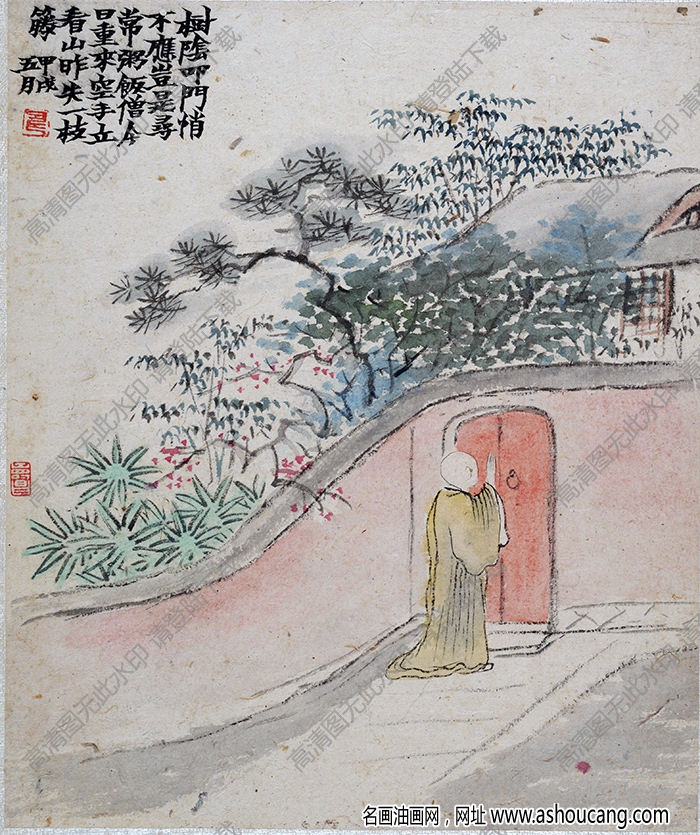 樹陰叩門悄
不應豈是尋
常粥飯僧今
日重來空手立
看山昨失一枝
籐 甲戌
五月
高清图无此水印 请登陆下载
名画油画网，网址 www.ashoucang.com